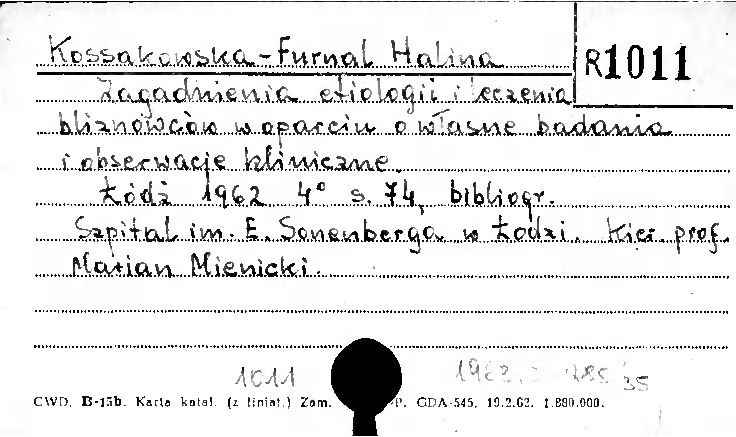 Kossakowska-Furnal Halina
R1011
Zagadnienia etiologii i leczenia
bliznowców w oparciu o własne badania
i obserwacje kliniczne.
Łódź 1962 4° s. 74, bibliogr.
Szpital im. E. Sonenberga w Łodzi. Kier. prof.
Marian Mienicki.
1011
CWD. B-15b. Karta katal. (z liniat.) Zam. P. GDA-545, 19.2.62. 1.880.000.